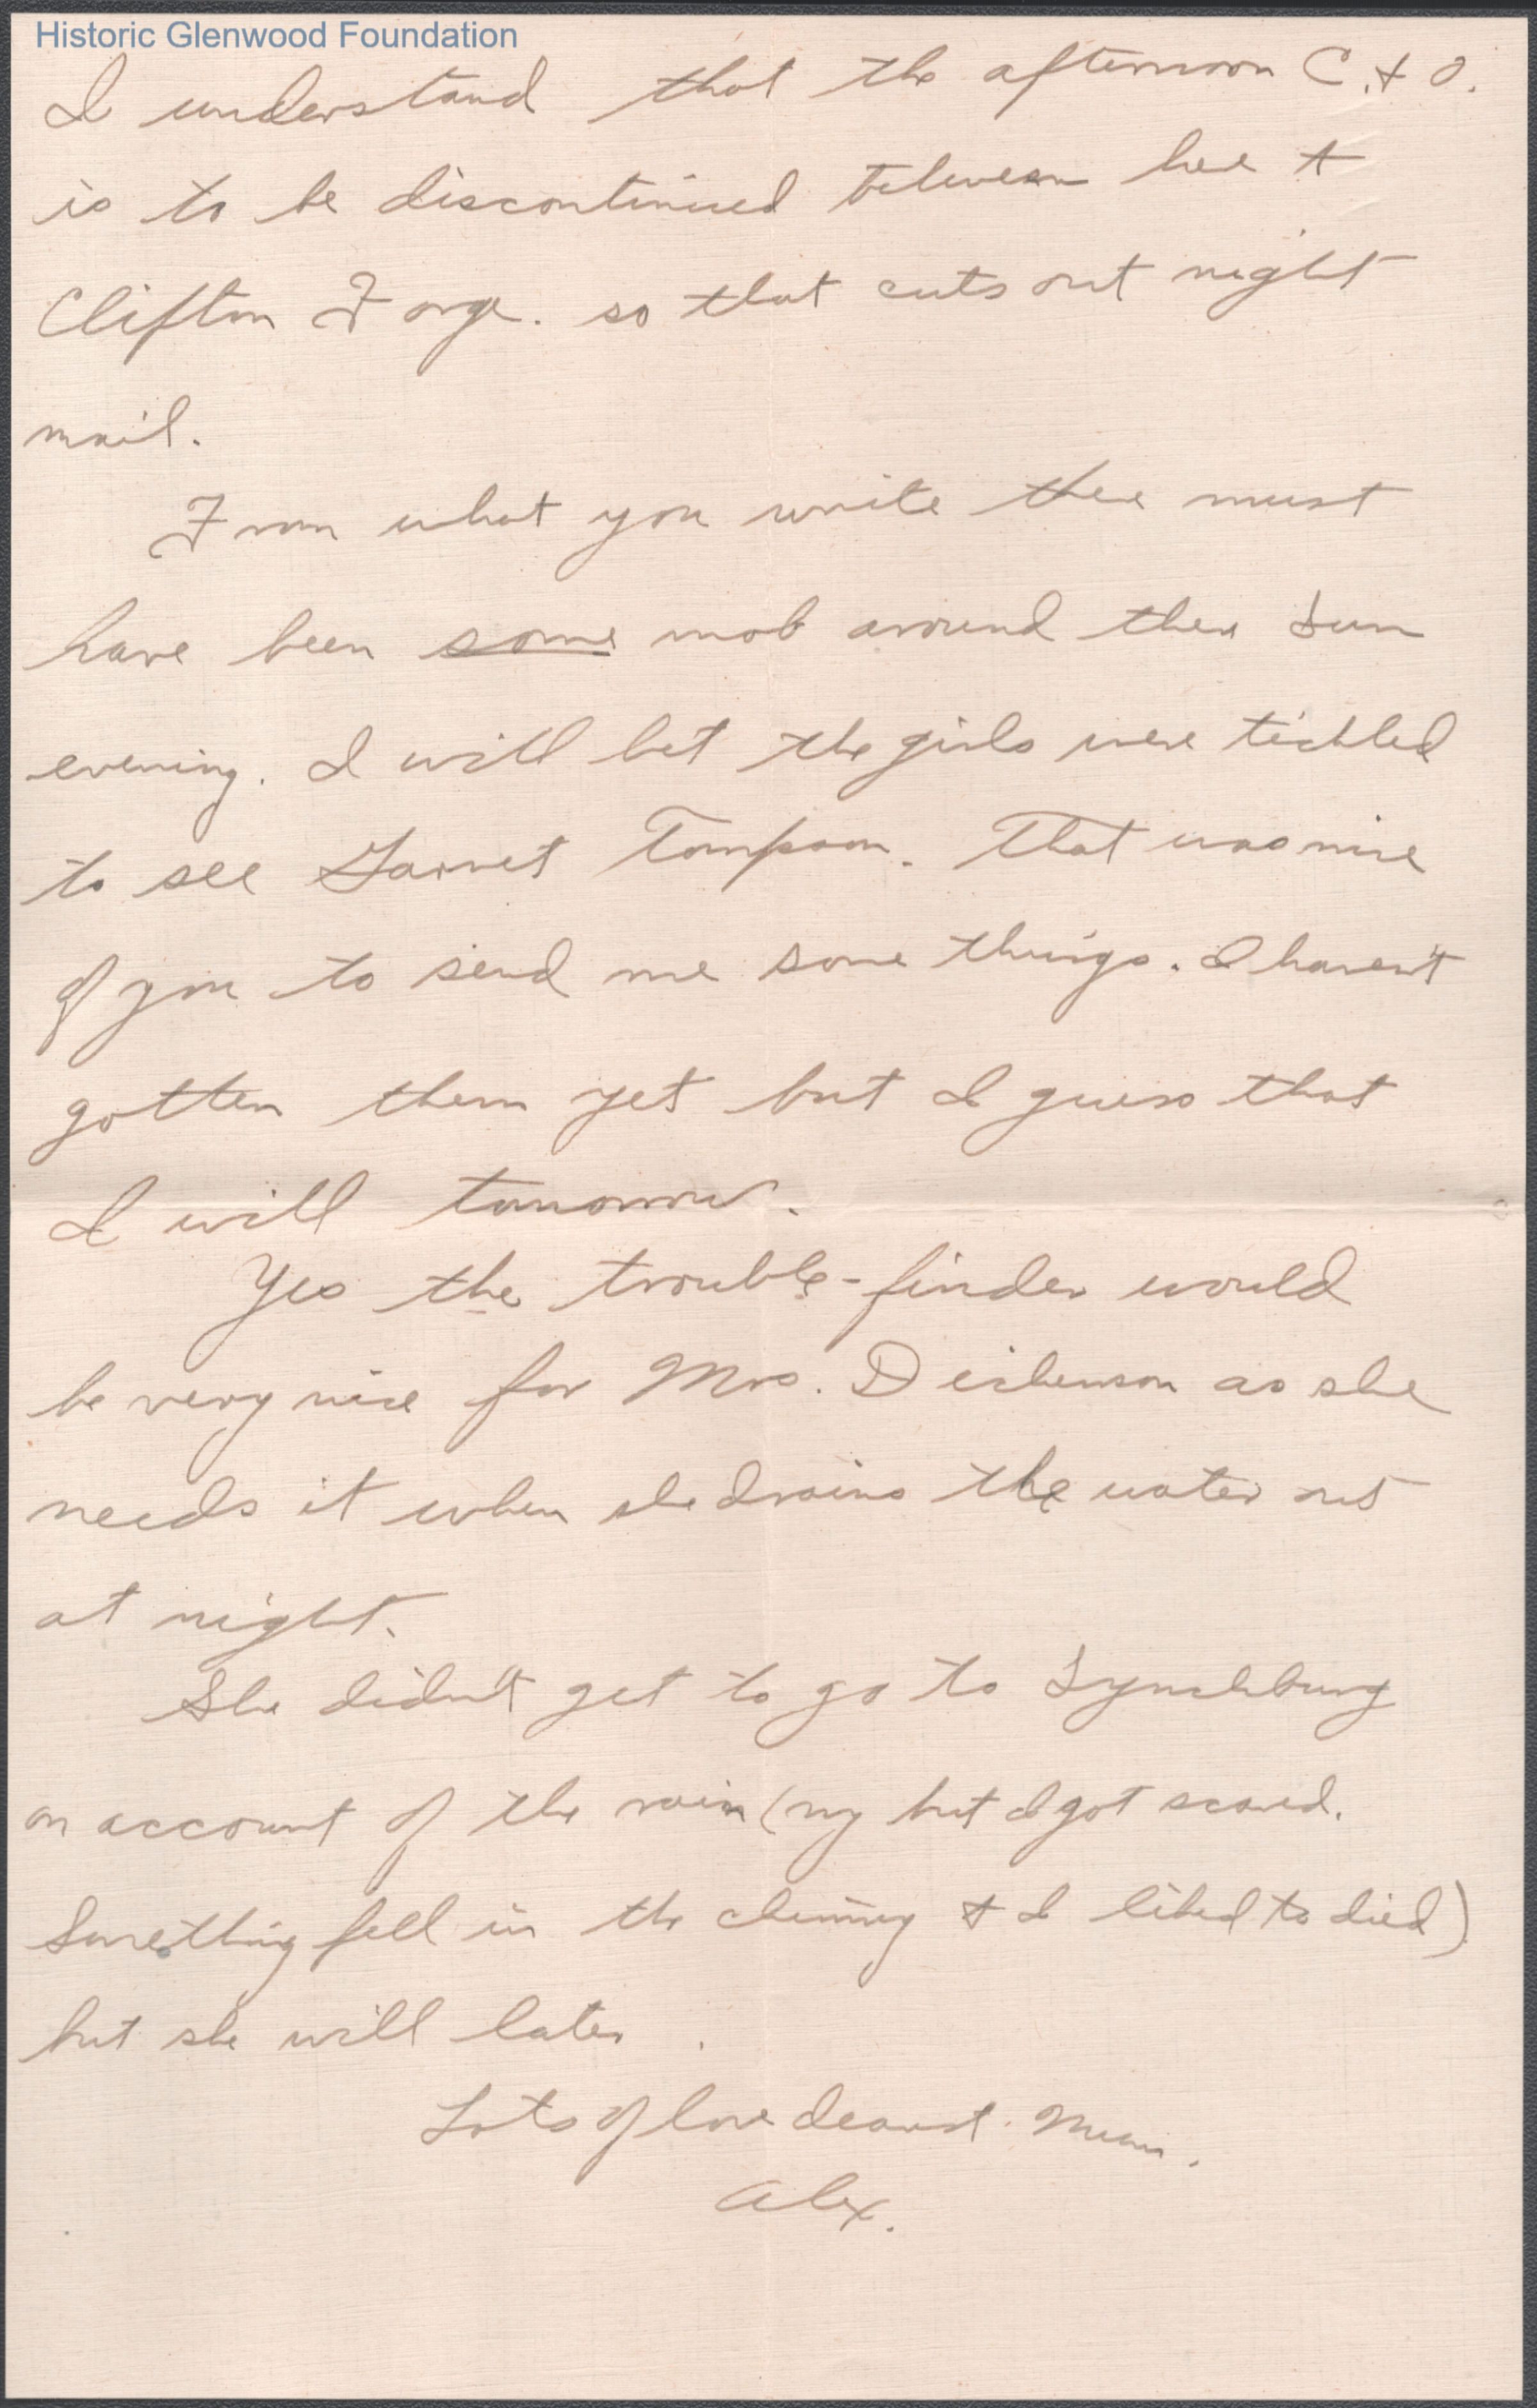 Historic Glenwood Foundation
I understand that the afternoon C. & O.
is to be discontinued between here &
Clifton Forge. so that cuts out night
mail.
From what you write there must
have been some mob around there Sun
evening. I will bet the girls were tickled
to see Garnet Tompson. That was nice
of you to send me some things. I haven't
gotten them yet but I guess that
I will tomorrow.
Yes the trouble-finder would
be very nice for Mrs. Dickenson as she
needs it when she drains the water out
at night.
She didn't get to go to Lynchburg
on account of the rain (my but I got scared.
Something fell in the chimney & I liked to died)
but she will later.
Lots of love dearest
Alex.